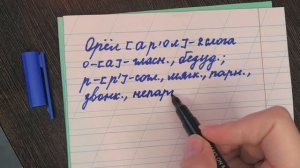 Орёл [ар'ол]-2 слога
о-[а]-гласн., безуд.;
р-[р']-согл., мягк., парн.,
звонк., непар